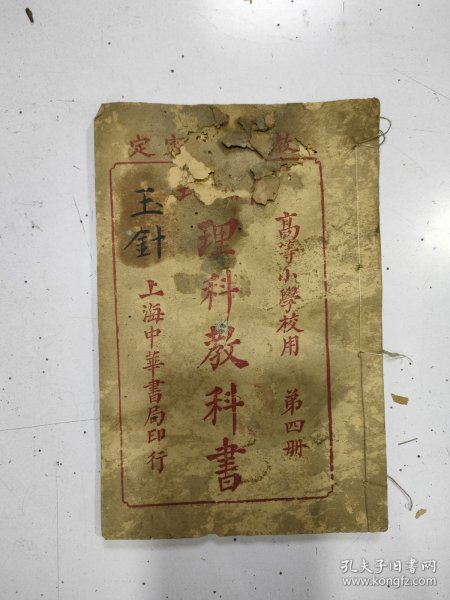 教 審定
高等小學校用 第四冊
理科教科書
上海中華書局印行
王針
孔夫子旧书网
www.kongfz.com